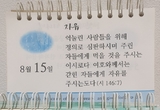 자유
억눌린 사람들을 위해
정의로 심판하시며 주린
자들에게 먹을 것을 주시는
이시로다 여호와께서는
갇힌 자들에게 자유를
주시는도다(시 146:7)
8월 15일